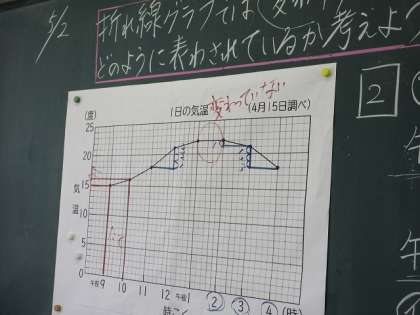 5/2
折れ線グラフでは
どのように表わされているか考えよう
2
変わっていない
(度) 1日の気温 (4月15日調べ)
25
20
15
10
5
0
気温
午前9 10 11 12 午後1 2 3 4 (時)
午